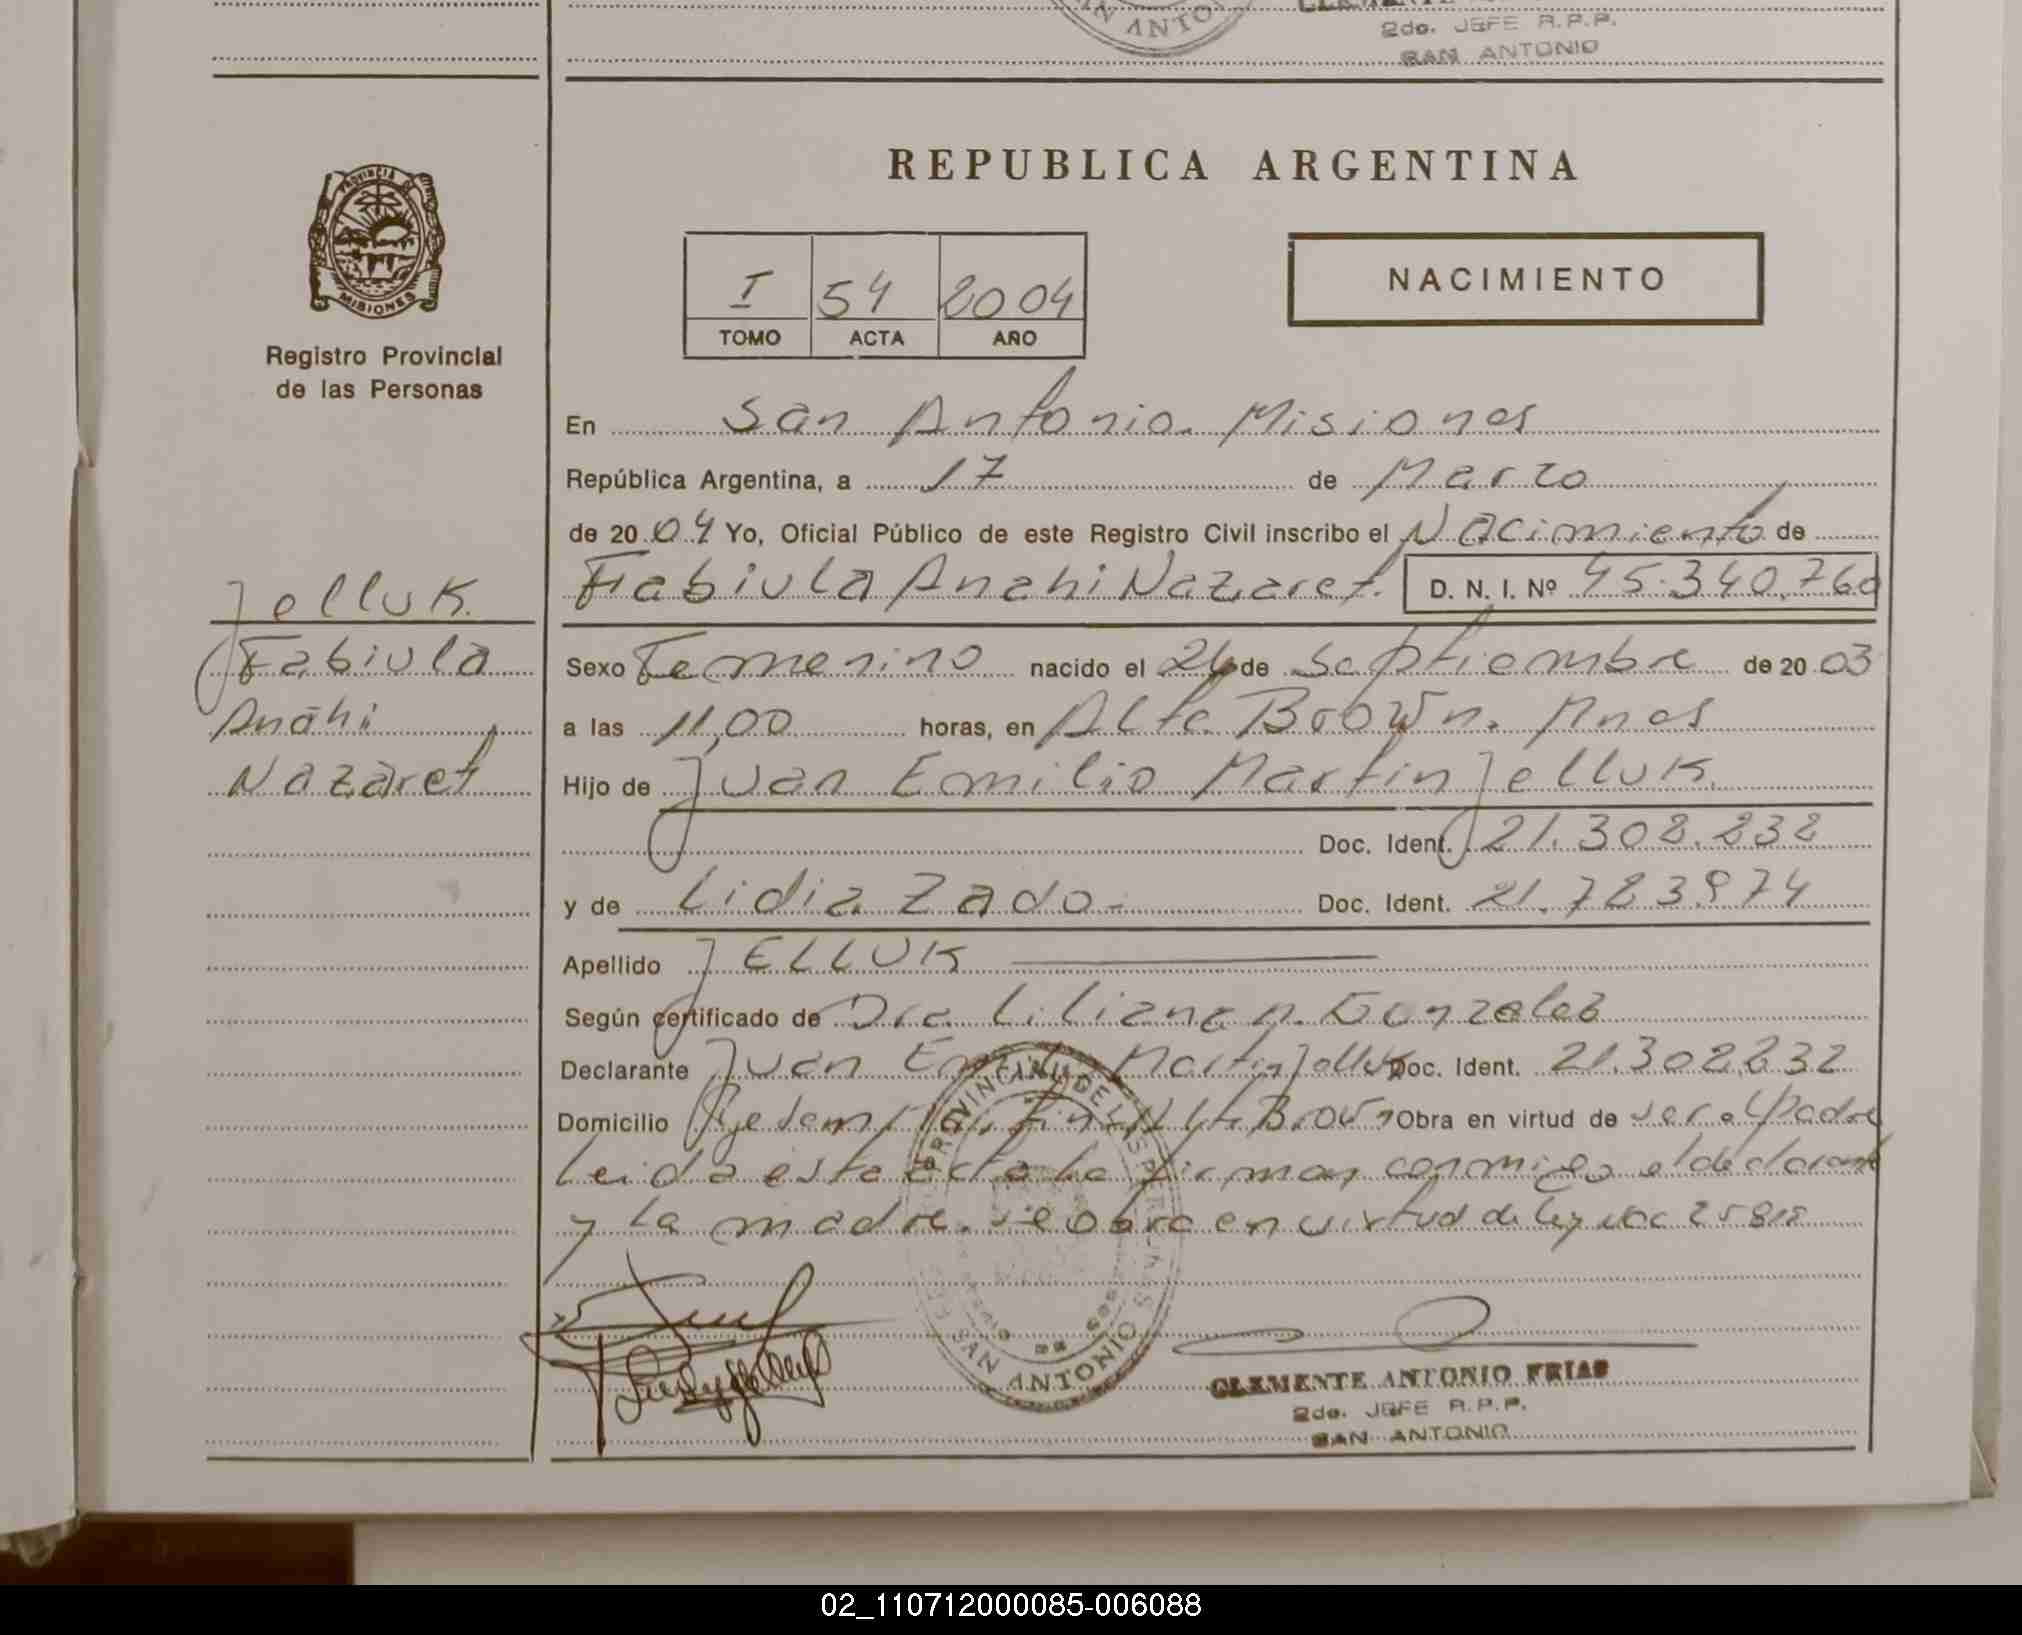 SAN ANTONIO
2do. JEFE R.P.P.
SAN ANTONIO
PROVINCIA DE
MISIONES
Registro Provincial
de las Personas
REPUBLICA ARGENTINA
I 54 2004
TOMO ACTA AÑO
NACIMIENTO
En San Antonio. Misiones
República Argentina, a 17 de Marzo
de 20 04 Yo, Oficial Público de este Registro Civil inscribo el Nacimiento de
Fabiula Anahi Nazaret. D. N. I. Nº 45.340.760
Jelluk.
Fabiula
Anahi
Nazaret
Sexo Femenino nacido el 26 de Septiembre de 20 03
a las 11,00 horas, en Alte. Brown. Mnes
Hijo de Juan Emilio Martin Jelluk.
Doc. Ident. 21.302.232
y de Lidia Zado.- Doc. Ident. 21.723.974
Apellido JELLUK
Según certificado de Dra. Liliana n. Gonzalez
Declarante Juan Emilio Martin Jelluk Doc. Ident. 21.302.232
Domicilio Alte Brown Obra en virtud de ser el Padre
Leida esta acta la firman conmigo el declarante
y la madre. se obra en virtud de ley nac 25818
SAN ANTONIO
CLEMENTE ANTONIO FRIAS
2do. JEFE R.P.P.
SAN ANTONIO
02_110712000085-006088